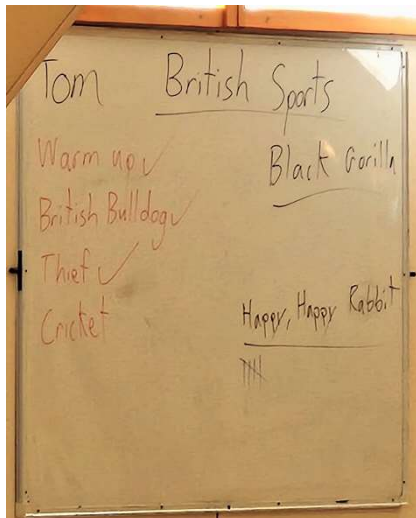 Tom
British Sports
Warm up ✓
British Bulldog ✓
Thief ✓
Cricket
Black Gorilla
Happy, Happy Rabbit